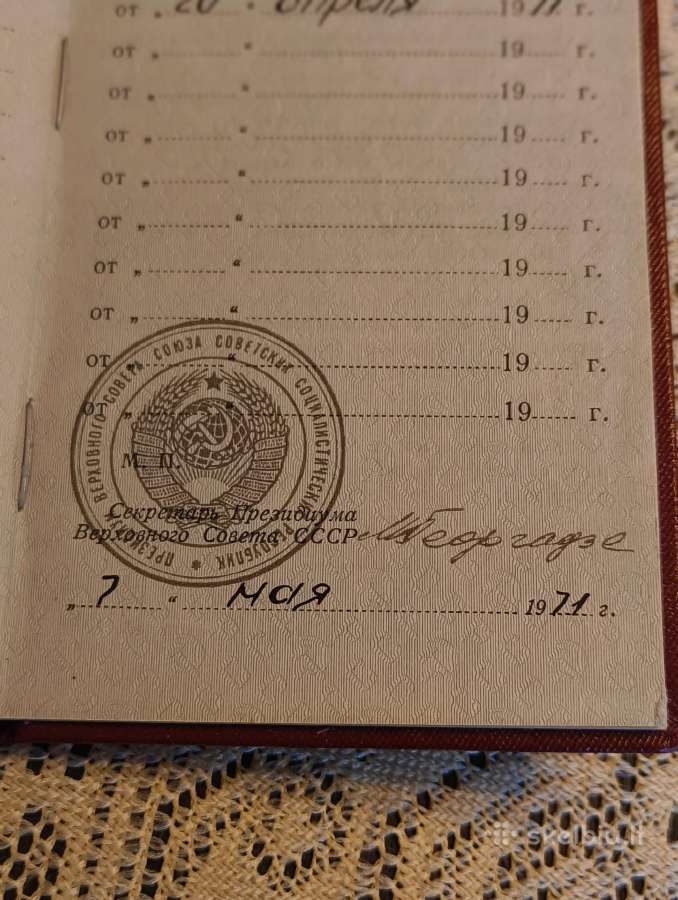 от „ 20 " апреля 1971 г.
от „ " 19 г.
от „ " 19 г.
от „ " 19 г.
от „ " 19 г.
от „ " 19 г.
от „ " 19 г.
от „ " 19 г.
от „ " 19 г.
от „ " 19 г.
ПРЕЗИДИУМ ВЕРХОВНОГО СОВЕТА СОЮЗА СОВЕТСКИХ СОЦИАЛИСТИЧЕСКИХ РЕСПУБЛИК
М. П.
Секретарь Президиума
Верховного Совета СССР МГеоргадзе
„ 7 " мая 1971 г.
skelbiu.lt